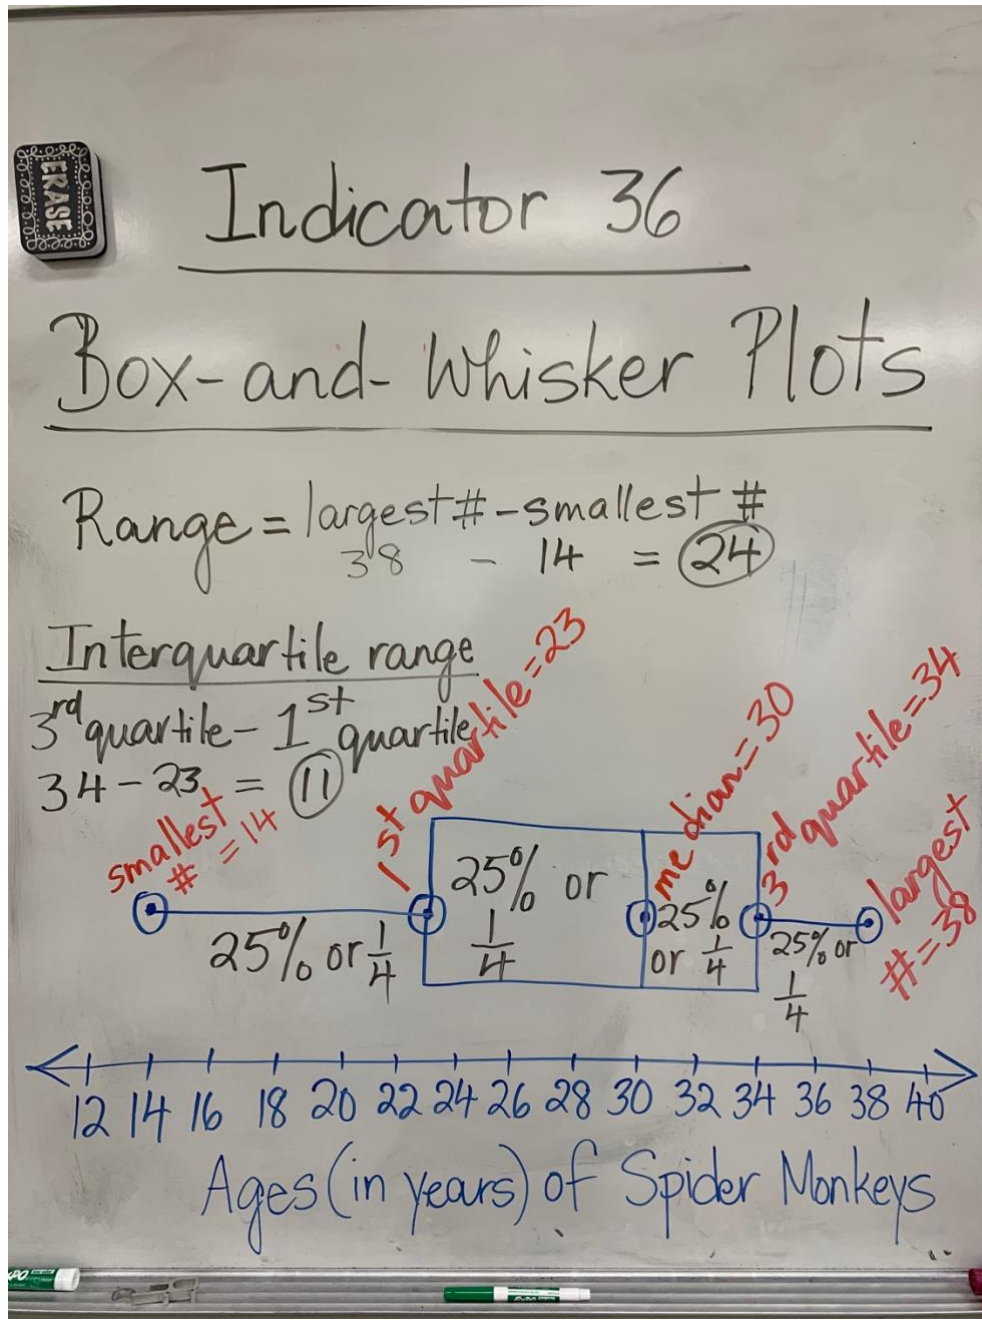 ERASE
Indicator 36
Box-and-Whisker Plots
Range = largest # - smallest #
38 - 14 = 24
Interquartile range
3rd quartile - 1st quartile
34 - 23 = 11
smallest
# = 14
1st quartile = 23
median = 30
3rd quartile = 34
largest
# = 38
25% or 1/4
25% or
1/4
25%
or 1/4
25% or
1/4
12 14 16 18 20 22 24 26 28 30 32 34 36 38 40
Ages (in years) of Spider Monkeys
EXPO